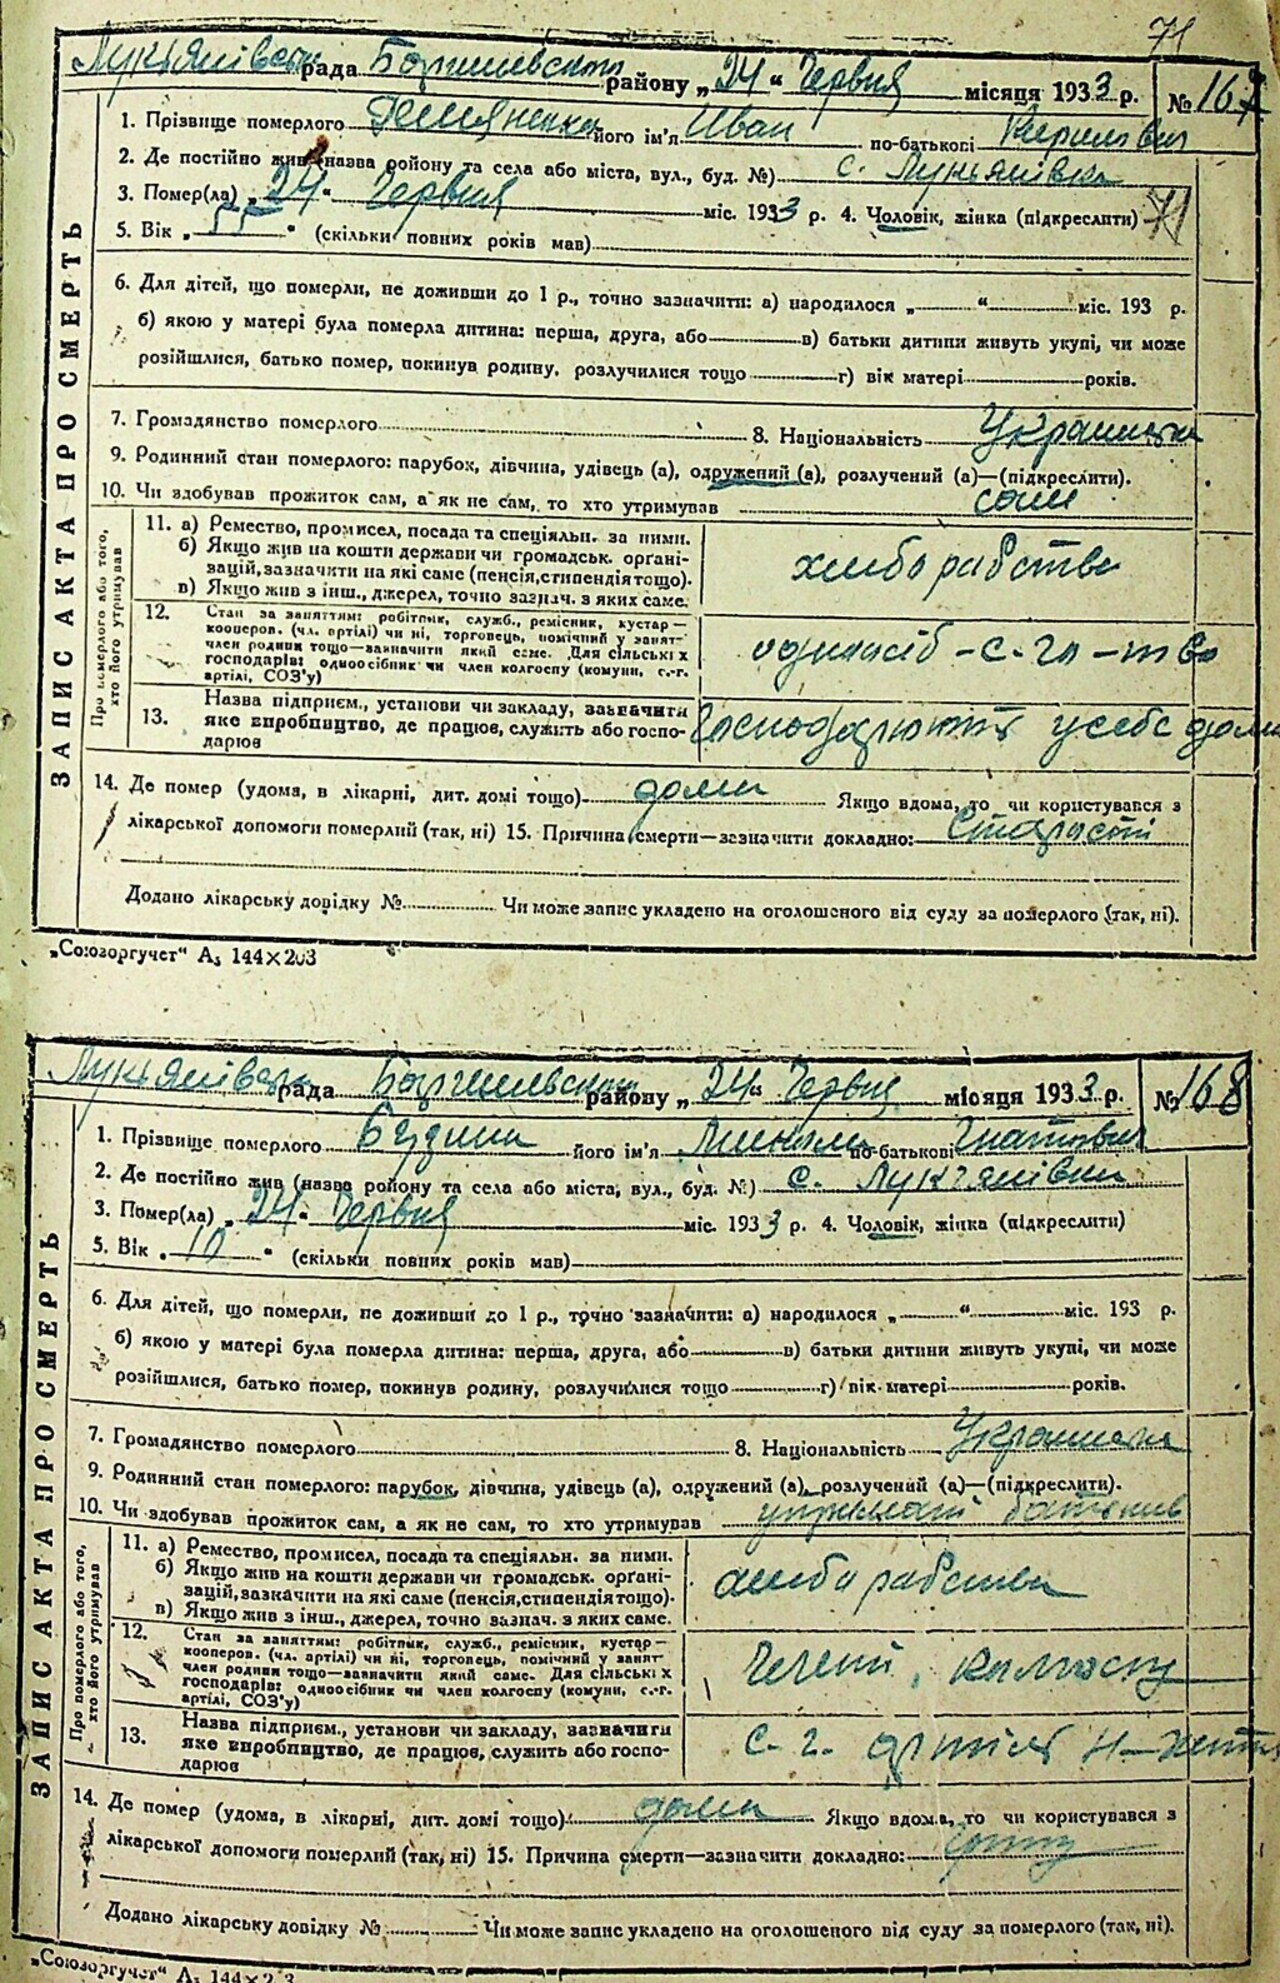 71
Лукьянівська рада Баришевского району „24" Червня місяця 1933 р. № 167
1. Прізвище померлого його ім'я Иван по-батькові Кирилович
2. Де постійно жив (назва району та села або міста, вул., буд. №) с. Лукьянівка
3. Помер(ла) „24" Червня міс. 1933 р. 4. Чоловік, жінка (підкреслити) 71
5. Вік „55" (скільки повних років мав)
6. Для дітей, що померли, не доживши до 1 р., точно зазначити: а) народилося „ " міс. 193 р.
б) якою у матері була померла дитина: перша, друга, або в) батьки дитини живуть укупі, чи може
розійшлися, батько помер, покинув родину, розлучилися тощо г) вік матері років.
7. Громадянство померлого 8. Національність
9. Родинний стан померлого: парубок, дівчина, удівець (а), одружений (а), розлучений (а)—(підкреслити).
10. Чи здобував прожиток сам, а як не сам, то хто утримував сам
ЗАПИС АКТА ПРО СМЕРТЬ
Про померлого або того, хто його утримував
11. а) Ремество, промисел, посада та спеціяльн. за ними.
б) Якщо жив на кошти держави чи громадськ. органі-
зацій, зазначити на які саме (пенсія, стипендія тощо).
в) Якщо жив з інш., джерел, точно зазнач. з яких саме.
хлеборобство
12. Стан за заняттям: робітник, служб., ремісник, кустар—
кооперов. (чл. артілі) чи ні, торговець, помічний у занят-
член родини тощо—зазначити який саме. Для сільськіх
господарів: одноосібник чи член колгоспу (комуни, с.-г.
артілі, СОЗ'у)
13. Назва підприєм., установи чи закладу, зазначити
яке виробництво, де працює, служить або госпо-
дарює
у себе дома
14. Де помер (удома, в лікарні, дит. домі тощо) дома Якщо вдома, то чи користувався з
лікарської допомоги померлий (так, ні) 15. Причина смерти—зазначити докладно: Старости
Додано лікарську довідку № Чи може запис укладено на оголошеного від суду за померлого (так, ні).
„Союзоргучет" А₅ 144×203
Лукьянівська рада Баришевского району „24" Червня місяця 1933 р. № 168
1. Прізвище померлого його ім'я по-батькові Гнатович
2. Де постійно жив (назва району та села або міста, вул., буд. №) с. Лукьянівка
3. Помер(ла) „24" Червня міс. 1933 р. 4. Чоловік, жінка (підкреслити)
5. Вік „10" (скільки повних років мав)
6. Для дітей, що померли, не доживши до 1 р., точно зазначити: а) народилося „ " міс. 193 р.
б) якою у матері була померла дитина: перша, друга, або в) батьки дитини живуть укупі, чи може
розійшлися, батько помер, покинув родину, розлучилися тощо г) вік матері років.
7. Громадянство померлого 8. Національність
9. Родинний стан померлого: парубок, дівчина, удівець (а), одружений (а), розлучений (а)—(підкреслити).
10. Чи здобував прожиток сам, а як не сам, то хто утримував
ЗАПИС АКТА ПРО СМЕРТЬ
Про померлого або того, хто його утримував
11. а) Ремество, промисел, посада та спеціяльн. за ними.
б) Якщо жив на кошти держави чи громадськ. органі-
зацій, зазначити на які саме (пенсія, стипендія тощо).
в) Якщо жив з інш., джерел, точно зазнач. з яких саме.
12. Стан за заняттям: робітник, служб., ремісник, кустар—
кооперов. (чл. артілі) чи ні, торговець, помічний у занят-
член родини тощо—зазначити який саме. Для сільськіх
господарів: одноосібник чи член колгоспу (комуни, с.-г.
артілі, СОЗ'у)
колгоспу
13. Назва підприєм., установи чи закладу, зазначити
яке виробництво, де працює, служить або госпо-
дарює
с. г. артіль
14. Де помер (удома, в лікарні, дит. домі тощо) дома Якщо вдома, то чи користувався з
лікарської допомоги померлий (так, ні) 15. Причина смерти—зазначити докладно:
Додано лікарську довідку № Чи може запис укладено на оголошеного від суду за померлого (так, ні).
„Союзоргучет" А₅ 144×2 3